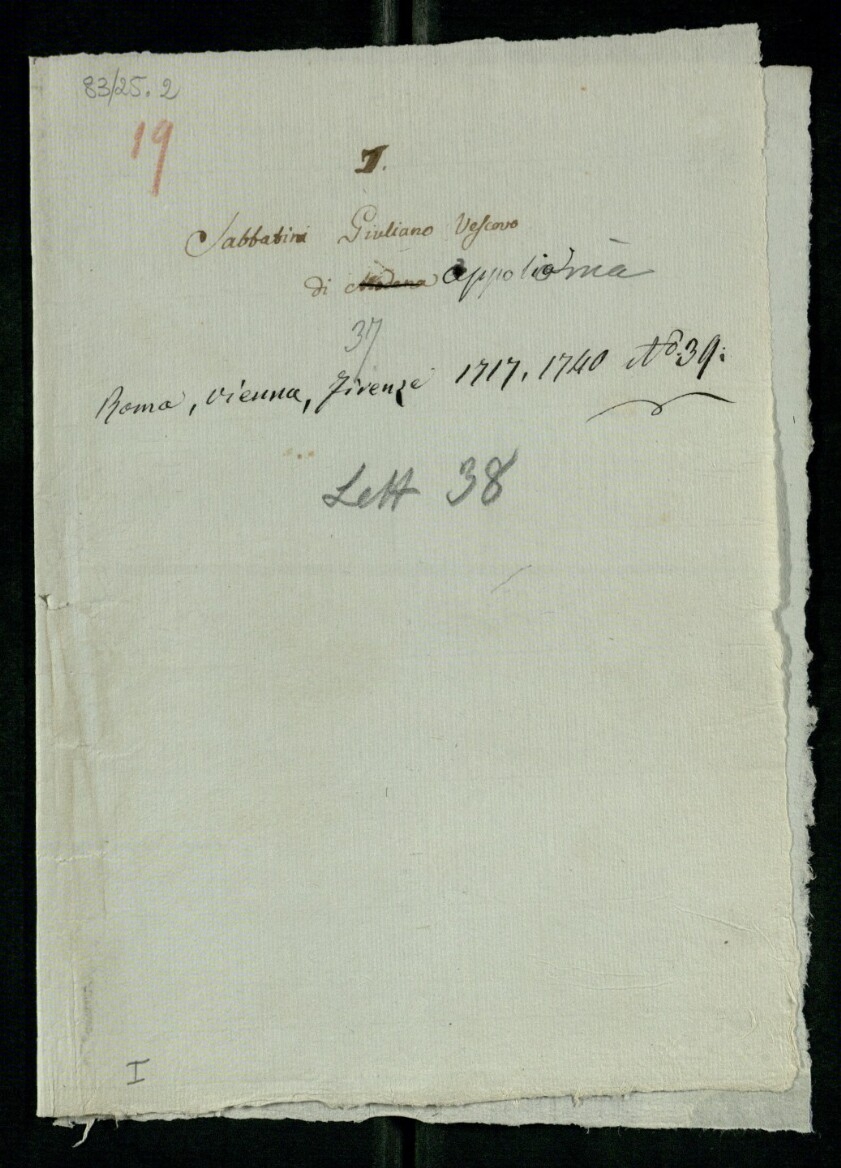 83/25.2
19
I.
Sabbatini Giuliano Vescovo
di Modena Appolionia
37
Roma, Vienna, Firenze 1717, 1740 No: 39:
Lett 38
I